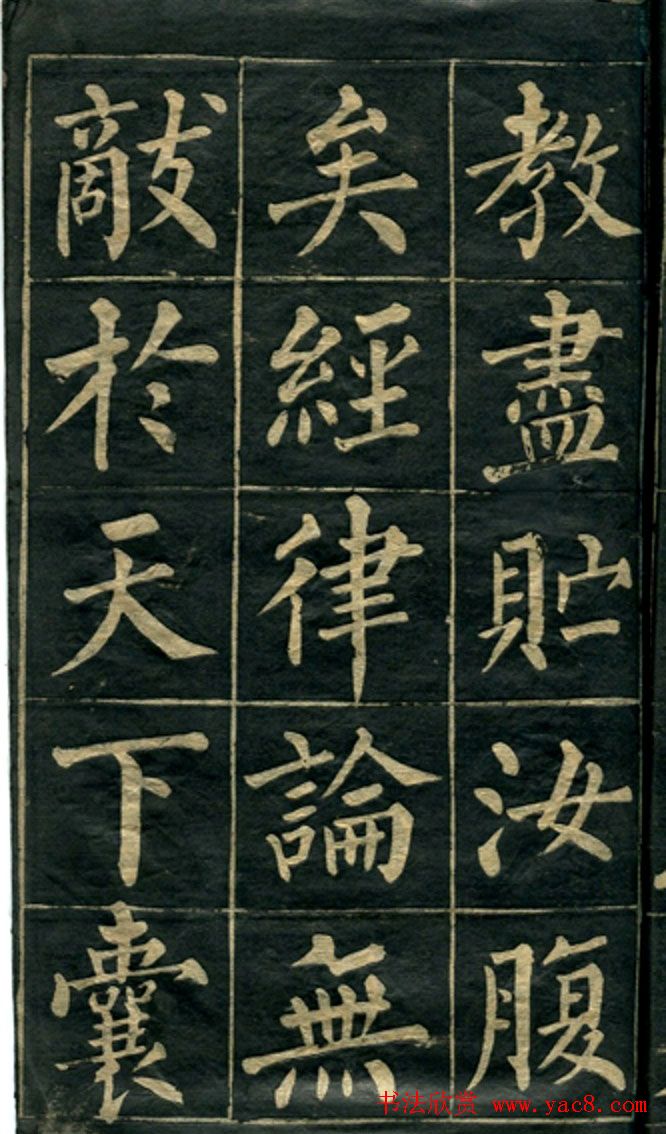 教盡貯汝腹
矣經律論無
敵於天下囊
书法欣赏 www.yac8.com